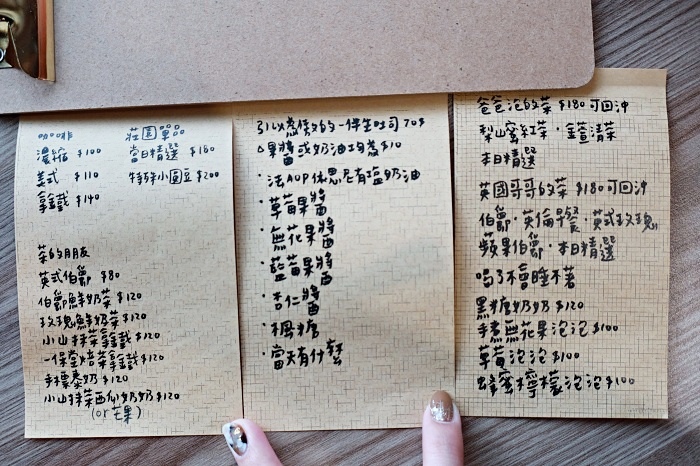 咖啡
濃縮 $100
美式 $110
拿鐵 $140
莊園單品
當日精選 $180
特殊小圓豆 $200
茶的朋友
英式伯爵 $80
伯爵鮮奶茶 $120
玫瑰鮮奶茶 $120
小山抹茶拿鐵 $120
一保堂焙茶拿鐵 $120
手標泰奶 $120
小山抹茶西仙奶奶 $120
(or芒果)
引以為傲的一保生吐司 70$
果醬或奶油均為$10
・法AOP依思尼有塩奶油
・草莓果醬
・無花果醬
・藍莓果醬
・杏仁醬
・楓糖
・當天有什麼
爸爸泡的茶 $180 可回沖
梨山蜜紅茶・金萱清茶
本日精選
英國哥哥的茶 $180可回沖
伯爵・英倫早餐・英式玫瑰
蘋果伯爵・本日精選
喝了不會睡不著
黑糖奶奶 $120
手煮無花果泡泡 $100
草莓泡泡 $100
蜂蜜檸檬泡泡 $100